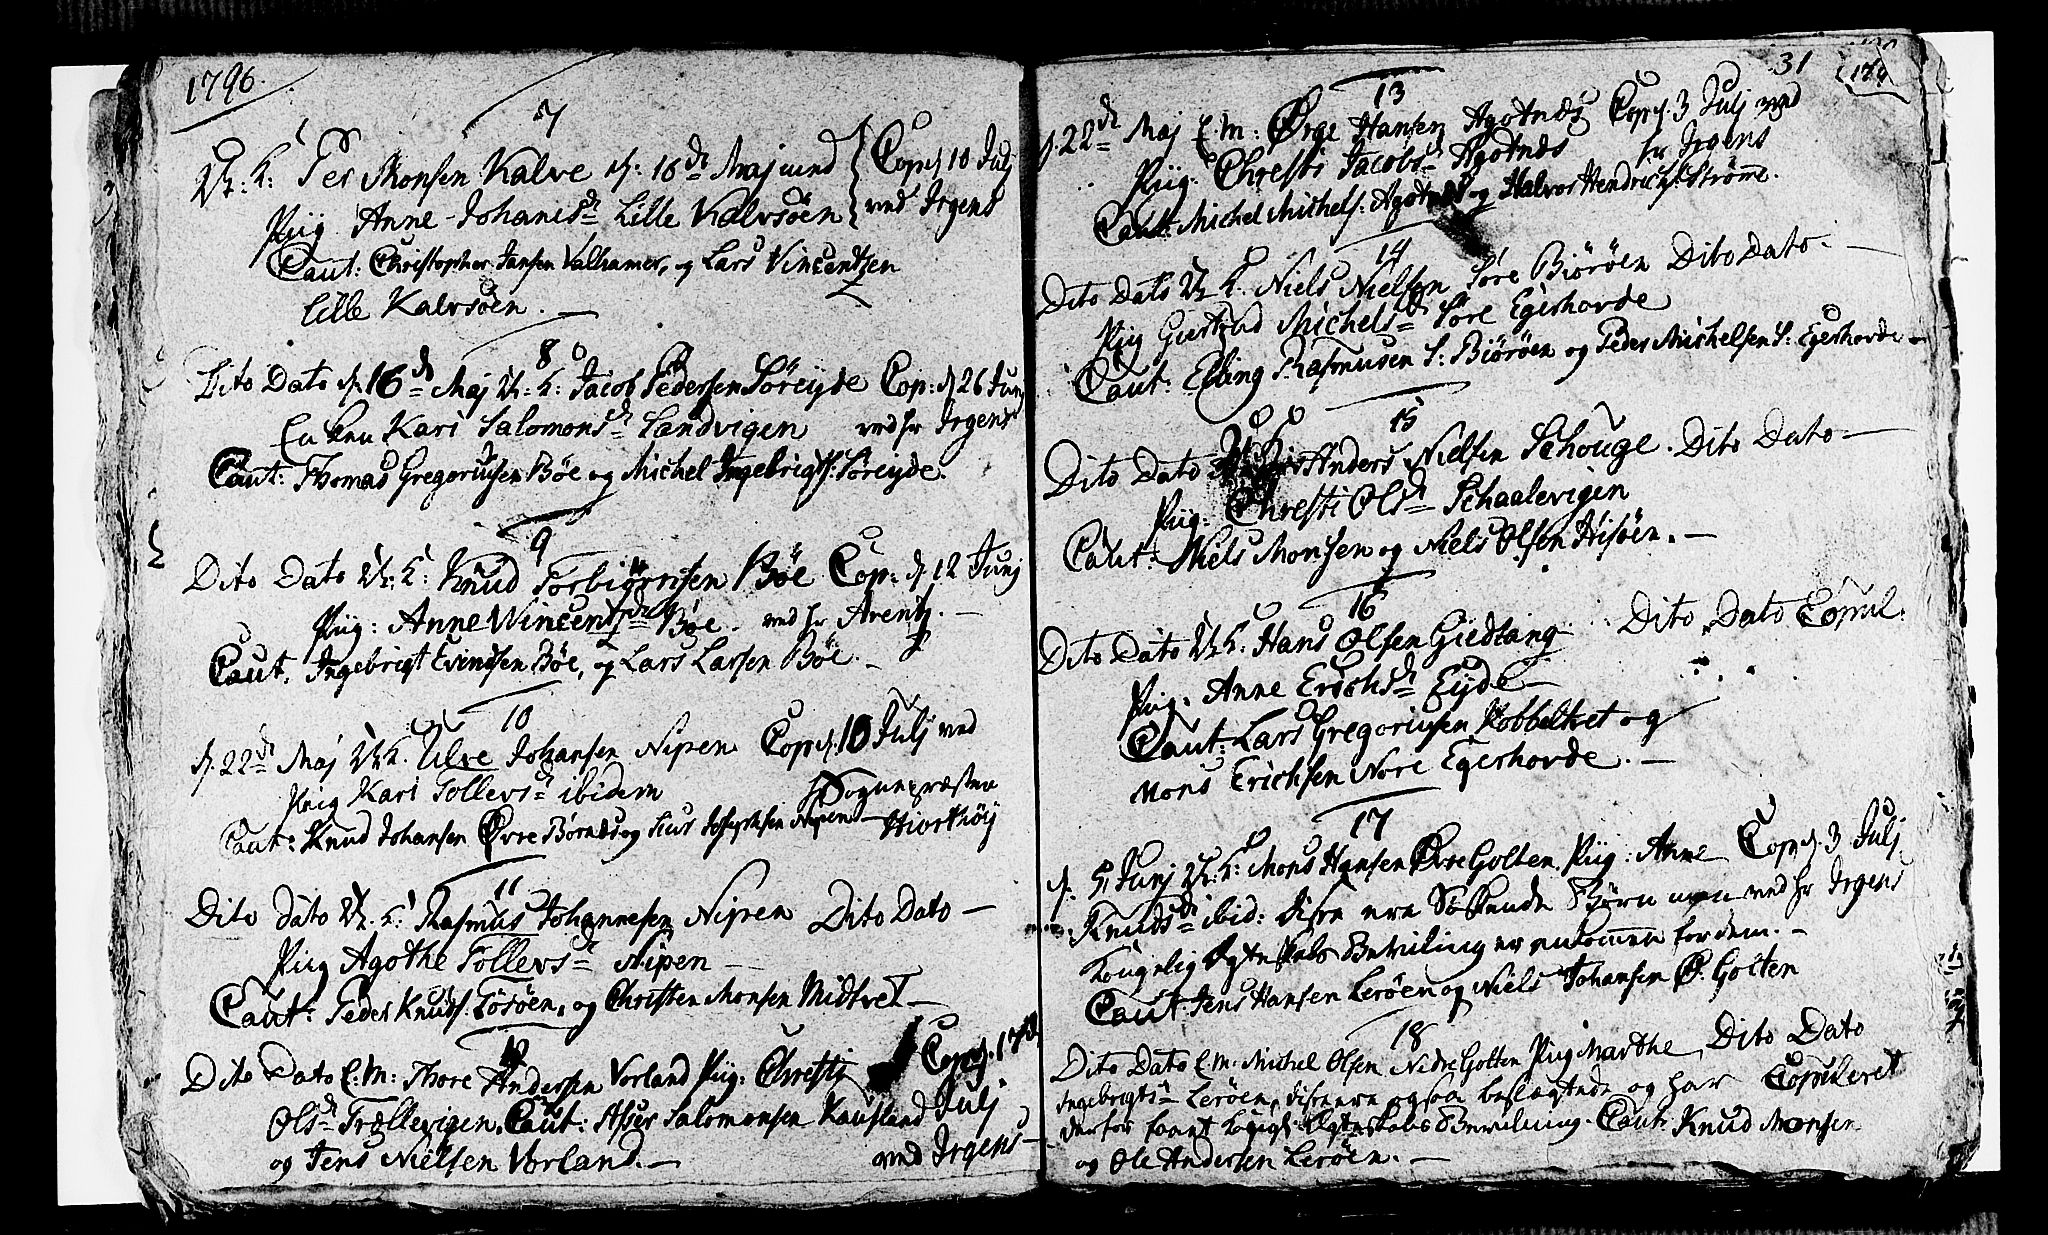 1796.
7
U: K: Per Monsen Kalve d: 16de Maj med Cop d. 10 Julj
Piig Anne Johanisd Lille Kalvsöen ved Irgens
Caut: Christopher Jansen Valhamer, og Lars Vincentzen
Lille Kalvsöen.
8
Dito Dato d. 16d Maj U. K: Jacob Pedersen Söreyde Cop: d 26 Junj
Enken Kari Salomonsd Landvigen ved hr Irgens
Caut: Thomas Gregoriusen Böe og Michel Ingebrigts: Söreyde.
9
Dito Dato U: K: Knud Torbiörnsen Böe Cop: d 12 Junj
Piig: Anne Wincentzd Böe. ved hr Arentz.
Caut. Ingebrigt Evindsen Böe, og Lars Larsen Böe.
10
d. 22de Maj U K. Ulve Johansen Nipen Cop d. 10 Julj ved
Piig Kari Tollevsd ibidem Sognepræsten
Caut: Knud Johansen Øvre Börnes og Josephsen Nipen Hiorthöy
11
Dito dato U. K: Rasmus Johannesen Nipen Dito Dato
Piig Agothe Tollevsd Nipen
Caut: Peder Knuds. Töröen, og Christen Monsen Midtvet
12
Dito Dato E: M: Thore Andersen Vorland Piig: Chresti Cop d. 17
Olsd Trællevigen. Caut: Asser Salomonsen Kausland Julj
og Jens Nielsen Vorland. ved Irgens
31
13
d. 22de Maj E. M: Ørge Hansen Agotnæs Cop d. 3 Julj ved
Piig. Chresti Jacobsd Agotnæs hr Irgens
Caut: Michel Michels: Agotnæs og Halvor Hendrichs: Strømme.
14
Dito Dato U K. Niels Nielsen Söre Biöröen Dito Dato.
Piig Giertrud Michelsd Söre Egershovde
Caut: Elling Rasmusen S: Biöröen og Peder Michelsen S: Egershovde
15
Dito Dato U K. Anders Nielsen Schouge. Dito Dato
Piig: Chresti Olsd Schaalevigen
Caut: Niels Monsen og Niels Olsen Hisöen.
16
Dito Dato U K: Hans Olsen Giedtang Dito Dato Copul.
Piig. Anne Erichsd Eyde
Caut: Lars Gregoriusen Kobbeltvet og
Mons Erichsen Nore Egershovde.
17
d. 5 Junj U. K: Mons Hansen Øvre Golten. Piig: Anne Cop d. 3 Julj.
Knudsd ibid: disse ere Söskende Börn men ved hr Irgens
Kongelig Ægteskabs Bevilling er ankommen for dem.
Caut: Jens Hansen Leröen og Niels Johansen Ø. Golten
18
Dito Dato E. M: Michel Olsen Nedre Golten Piig Marthe Dito Dato
Ingebrigtsd Leröen, disse ere ogsaa beslægtede og har Copuleret
derfor faaet Kongl: Ægteskabs Bevilling. Caut: Knud Monsen
og Ole Andersen Leröen.